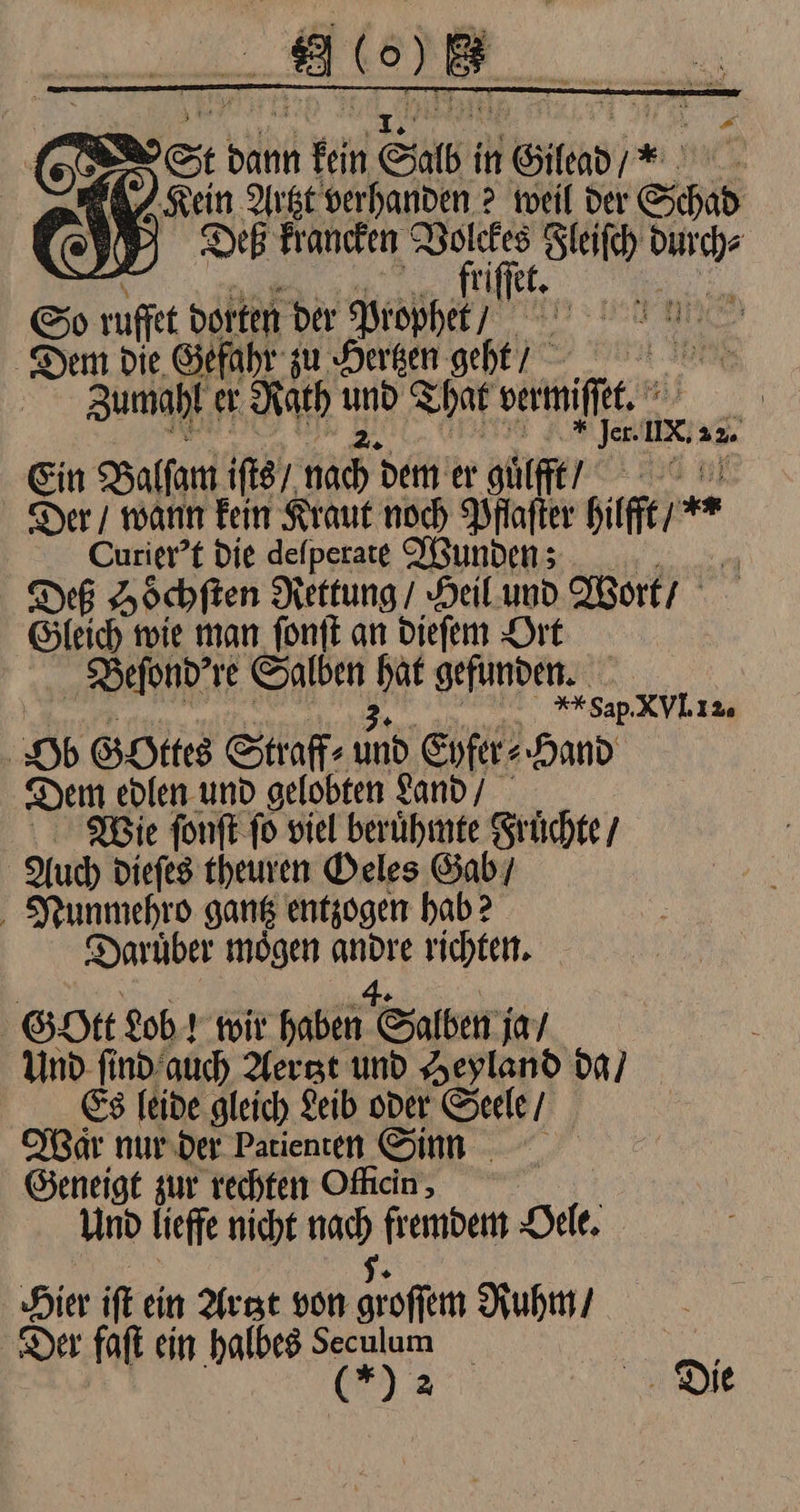 (o)
1.
ISt dann kein Salb in Gilead / *
Kein Artzt verhanden ? weil der Schad
Deß krancken Volckes Fleiſch durch⸗
friſſet.
So ruffet dorten der Prophet /
Dem die Gefahr zu Hertzen geht /
Zumahl er Rath und That vermiſſet.
* Jer. IIX. 22.
2.
Ein Balſam iſts / nach dem er guͤlfft /
Der / wann kein Kraut noch Pflaſter hilfft / **
Curier't die deſperate Wunden ;
Deß Hoͤchſten Rettung / Heil und Wort /
Gleich wie man ſonſt an dieſem Ort
Beſond're Salben hat gefunden.
** Sap. XVI. 12.
3.
Ob GOttes Straff⸗ und Eyfer⸗Hand
Dem edlen und gelobten Land /
Wie ſonſt ſo viel beruͤhmte Fruͤchte /
Auch dieſes theuren Oeles Gab /
Nunmehro gantz entzogen hab ?
Daruͤber moͤgen andre richten.
4.
GOtt Lob ! wir haben Salben ja /
Und ſind auch Aertzt und Heyland da /
Es leide gleich Leib oder Seele /
Waͤr nur der Patienten Sinn
Geneigt zur rechten Officin,
Und lieffe nicht nach fremdem Oele.
5.
Hier iſt ein Artzt von groſſem Ruhm /
Der faſt ein halbes Seculum
(*) 2
Die